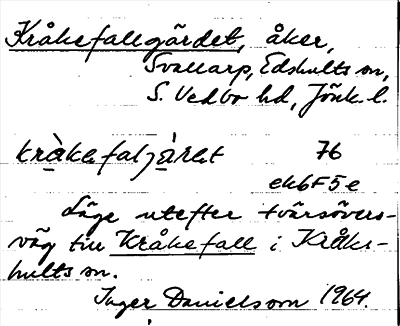 Kråkefallgärdet, åker,
Svallarp, Edshults sn,
S. Vedbo hd, Jönk. l.
kràkefaljàrɛt 76
ek6F5e
Läge utefter tvärsövers-
väg till Kråkefall i Kråks-
hults sn.
Inger Danielsson 1964.